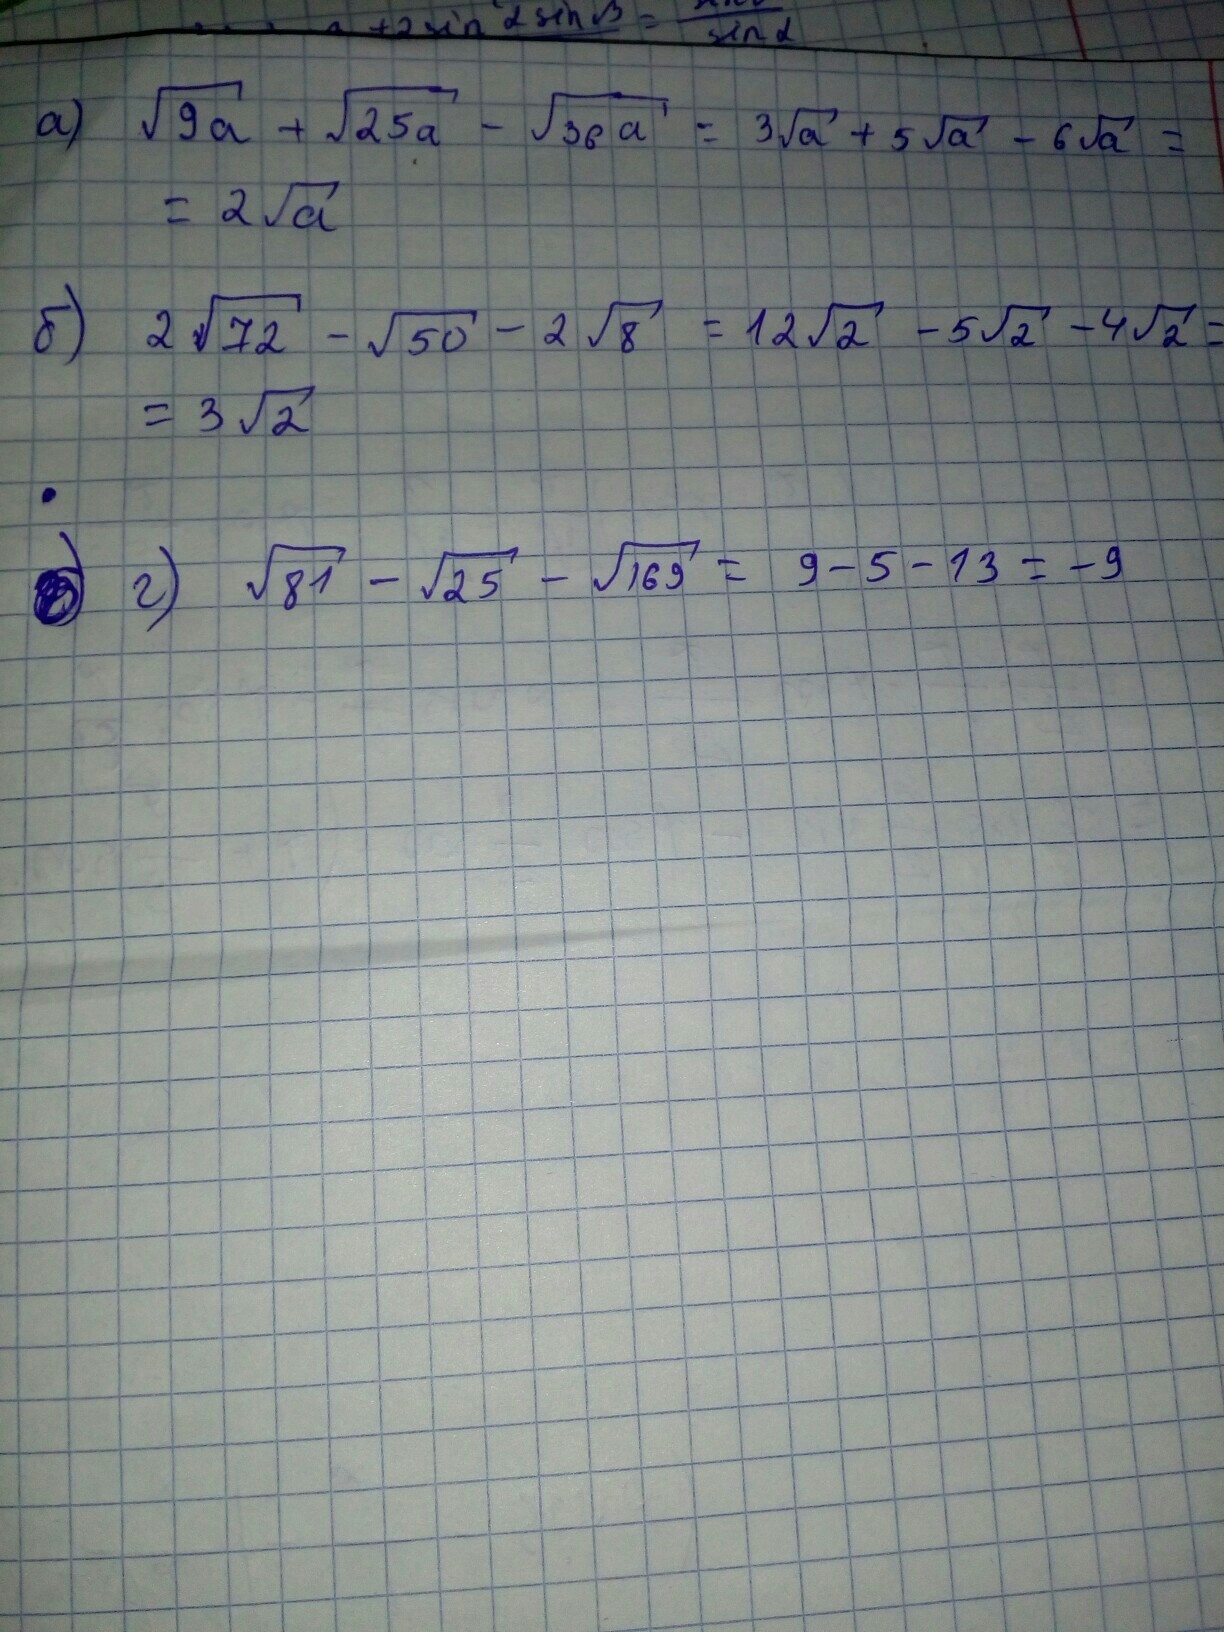 +2 sin α sin β = / sin α
а) √9a + √25a - √36a = 3√a + 5√a - 6√a =
= 2√a
б) 2√72 - √50 - 2√8 = 12√2 - 5√2 - 4√2 =
= 3√2
г) √81 - √25 - √169 = 9 - 5 - 13 = -9